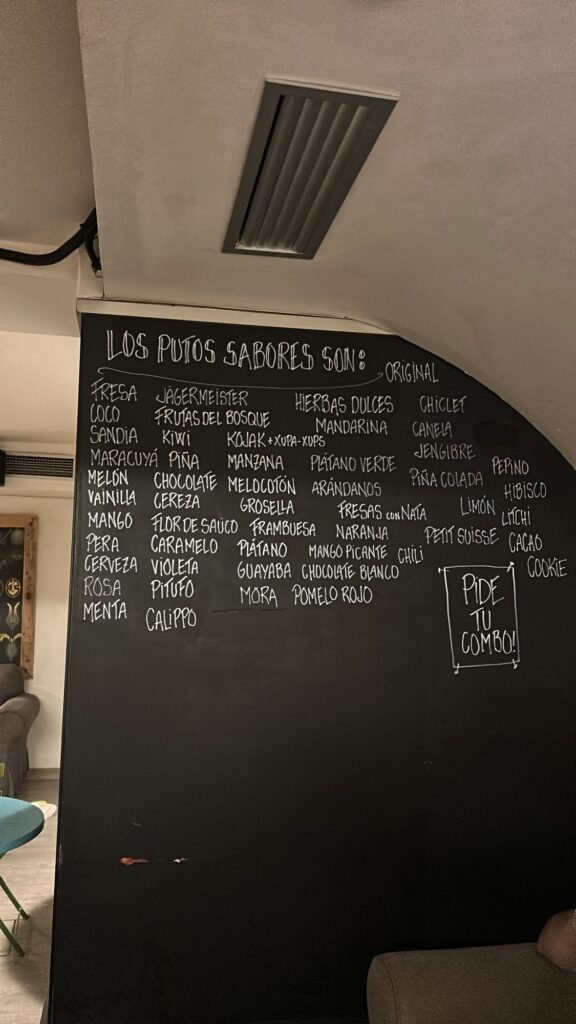 LOS PUTOS SABORES SON:
ORIGINAL
FRESA JÄGERMEISTER HIERBAS DULCES CHICLET
COCO FRUTAS DEL BOSQUE MANDARINA CANELA
SANDIA KIWI KOJAK + XUPA-XUPS JENGIBRE
MARACUYÁ PIÑA MANZANA PLÁTANO VERDE PIÑA COLADA PEPINO
MELÓN CHOCOLATE MELOCOTÓN ARÁNDANOS HIBISCO
VAINILLA CEREZA GROSELLA FRESAS CON NATA LIMÓN LITCHI
MANGO FLOR DE SAÚCO FRAMBUESA NARANJA PETIT SUISSE CACAO
PERA CARAMELO PLÁTANO MANGO PICANTE CHILI COOKIE
CERVEZA VIOLETA GUAYABA CHOCOLATE BLANCO
ROSA PITUFO MORA POMELO ROJO
MENTA CALIPPO
PIDE
TU
COMBO!